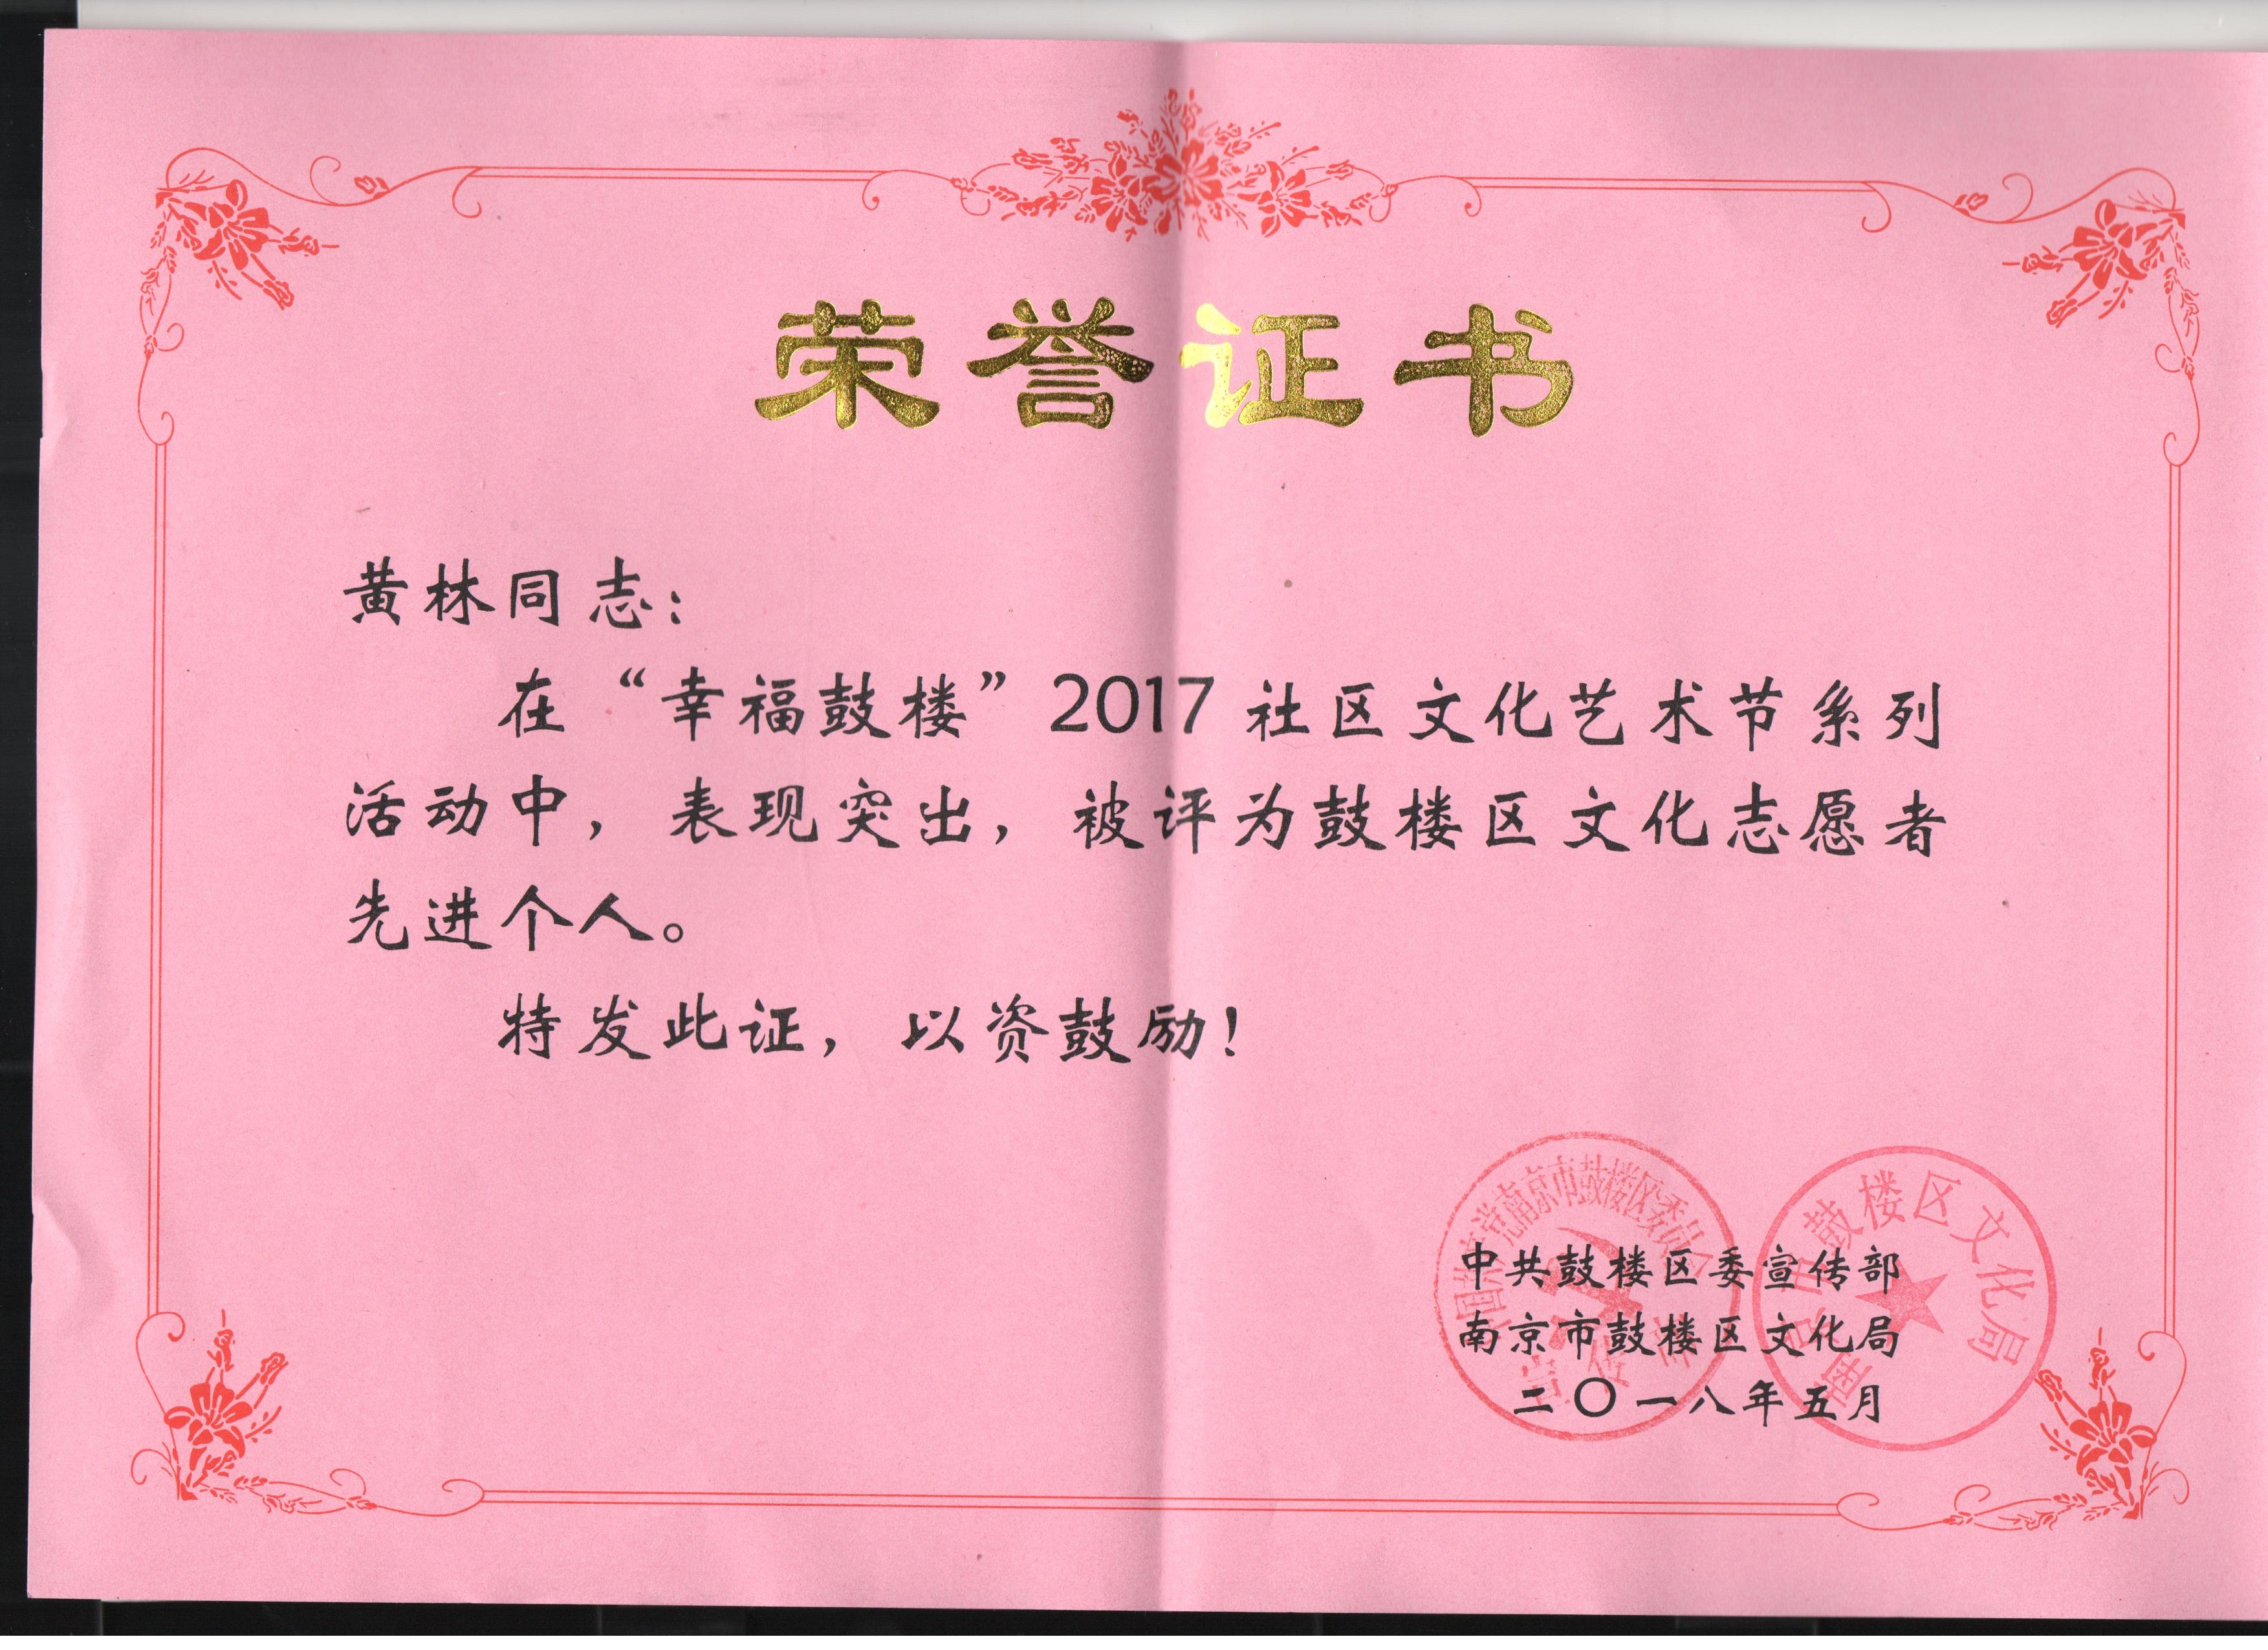 荣誉证书
黄林同志：
在“幸福鼓楼”2017社区文化艺术节系列
活动中，表现突出，被评为鼓楼区文化志愿者
先进个人。
特发此证，以资鼓励！
中共鼓楼区委宣传部
南京市鼓楼区文化局
二〇一八年五月
中国共产党南京市鼓楼区委员会
宣传部
南京市鼓楼区文化局